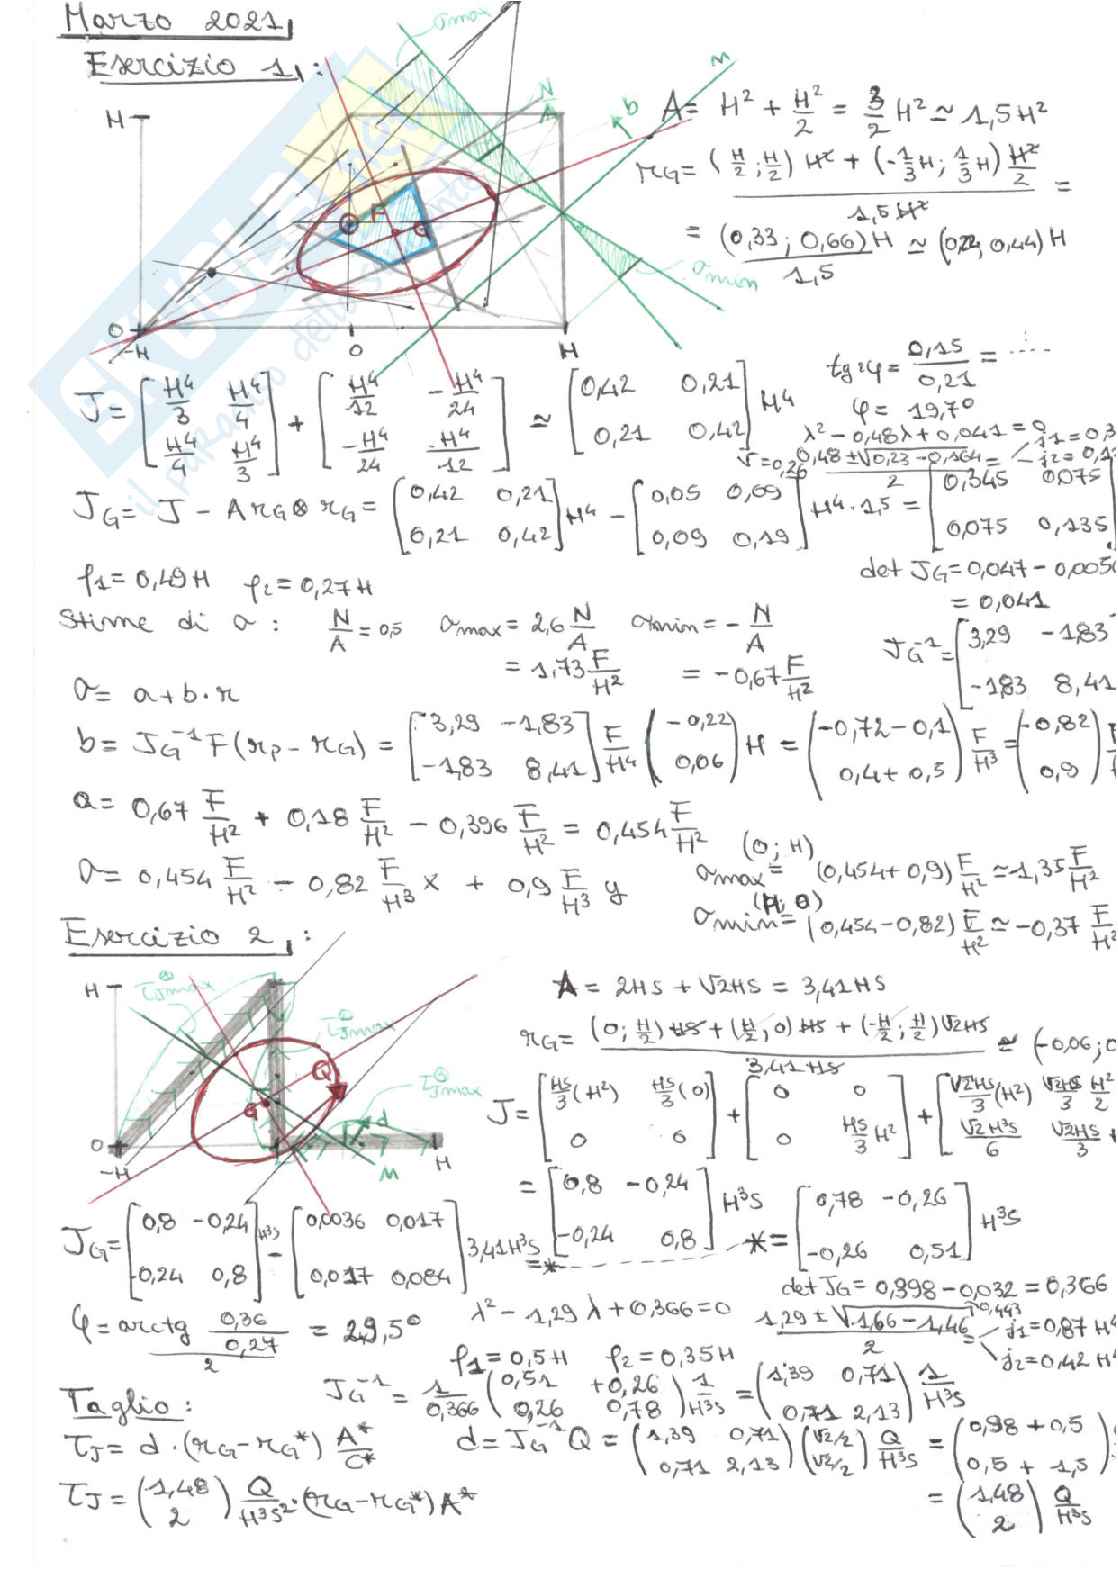 Marzo 2021
Esercizio 1:
σmax
N/A
n
b
H
F
G
σmin
0
-H 0 H
A = H² + H²/2 = 3/2 H² ≃ 1,5H²
rG = ((H/2; H/2) H² + (-1/3H; 1/3H) H²/2) / 1,5H² =
= (0,33; 0,66)H / 1,5 ≃ (0,22; 0,44)H
J = [H⁴/3 H⁴/4; H⁴/4 H⁴/3] + [H⁴/12 -H⁴/24; -H⁴/24 H⁴/12] ≃ [0,42 0,21; 0,21 0,42] H⁴
tg2φ = 0,15/0,21 = ....
φ = 19,7°
λ² - 0,48λ + 0,041 = 0
√ = 0,26 (0,48 ± √0,23 - 0,164)/2 =
JG = J - A rG ⊗ rG = [0,42 0,21; 0,21 0,42] H⁴ - [0,05 0,09; 0,09 0,19] H⁴·1,5 = [0,345 0,075; 0,075 0,135]
ρ1 = 0,49H ρ2 = 0,27H
det JG = 0,047 - 0,0056
= 0,041
Stime di σ: N/A = 0,5 σmax = 2,6 N/A σmin = - N/A
= 1,73 F/H² = -0,67 F/H²
JG⁻¹ = [3,29 -1,83; -1,83 8,41]
σ = a + b·r
b = JG⁻¹ F(rp - rG) = [3,29 -1,83; -1,83 8,41] F/H⁴ (-0,22; 0,06) H = (-0,72-0,1; 0,4+0,5) F/H³ = (-0,82; 0,9)
a = 0,67 F/H² + 0,18 F/H² - 0,396 F/H² = 0,454 F/H²
σ = 0,454 F/H² - 0,82 F/H³ x + 0,9 F/H³ y
(0; H)
σmax = (0,454 + 0,9) F/H² ≃ 1,35 F/H²
(H; 0)
σmin = (0,454 - 0,82) F/H² ≃ -0,37 F/H²
Esercizio 2:
H
τJmax
τJmax
τJmax
Q
G
d
n
0
-H H
A = 2HS + √2HS = 3,41HS
rG = ((0; H/2) HS + (H/2; 0) HS + (-H/2; H/2) √2HS) / 3,41HS ≃ (-0,06; 0
J = [HS/3 (H²) HS/3 (0); 0 0] + [0 0; 0 HS/3 H²] + [√2HS/3 (H²) √2HS/3 H²/2; √2H³S/6 √2HS/3
= [0,8 -0,24; -0,24 0,8] H³S
JG = [0,8 -0,24; -0,24 0,8] H³S - [0,0036 0,017; 0,017 0,084] 3,41H³S = *
* = [0,78 -0,26; -0,26 0,51] H³S
det JG = 0,398 - 0,032 = 0,366
φ = arctg (0,36/0,27) / 2 = 29,5°
λ² - 1,29λ + 0,366 = 0
(1,29 ± √1,66 - 1,46)/2 = j1 = 0,87 H⁴ j2 = 0,42 H⁴
0,443
ρ1 = 0,5H ρ2 = 0,35H
JG⁻¹ = 1/0,366 (0,51 +0,26; 0,26 0,78) 1/H³S = (1,39 0,71; 0,71 2,13) 1/H³S
Taglio:
τJ = d·(rG - rG*) A*/C*
d = JG⁻¹ Q = (1,39 0,71; 0,71 2,13) (√2/2; √2/2) Q/H³S = (0,98 + 0,5; 0,5 + 1,5)
τJ = (1,48; 2) Q/H³S² · (rG - rG*) A*
= (1,48; 2) Q/H³S